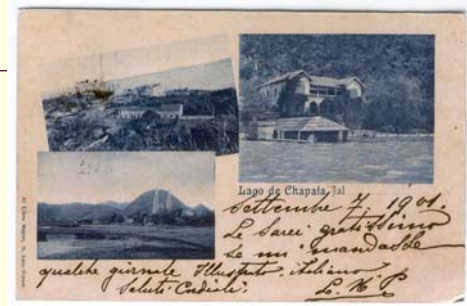 Lago de Chapala, Jal
Settembre 7, 1901.
Le sarei gratissimo
se mi mandasse
qualche giornale Illustrato italiano
Saluti Cordiali.